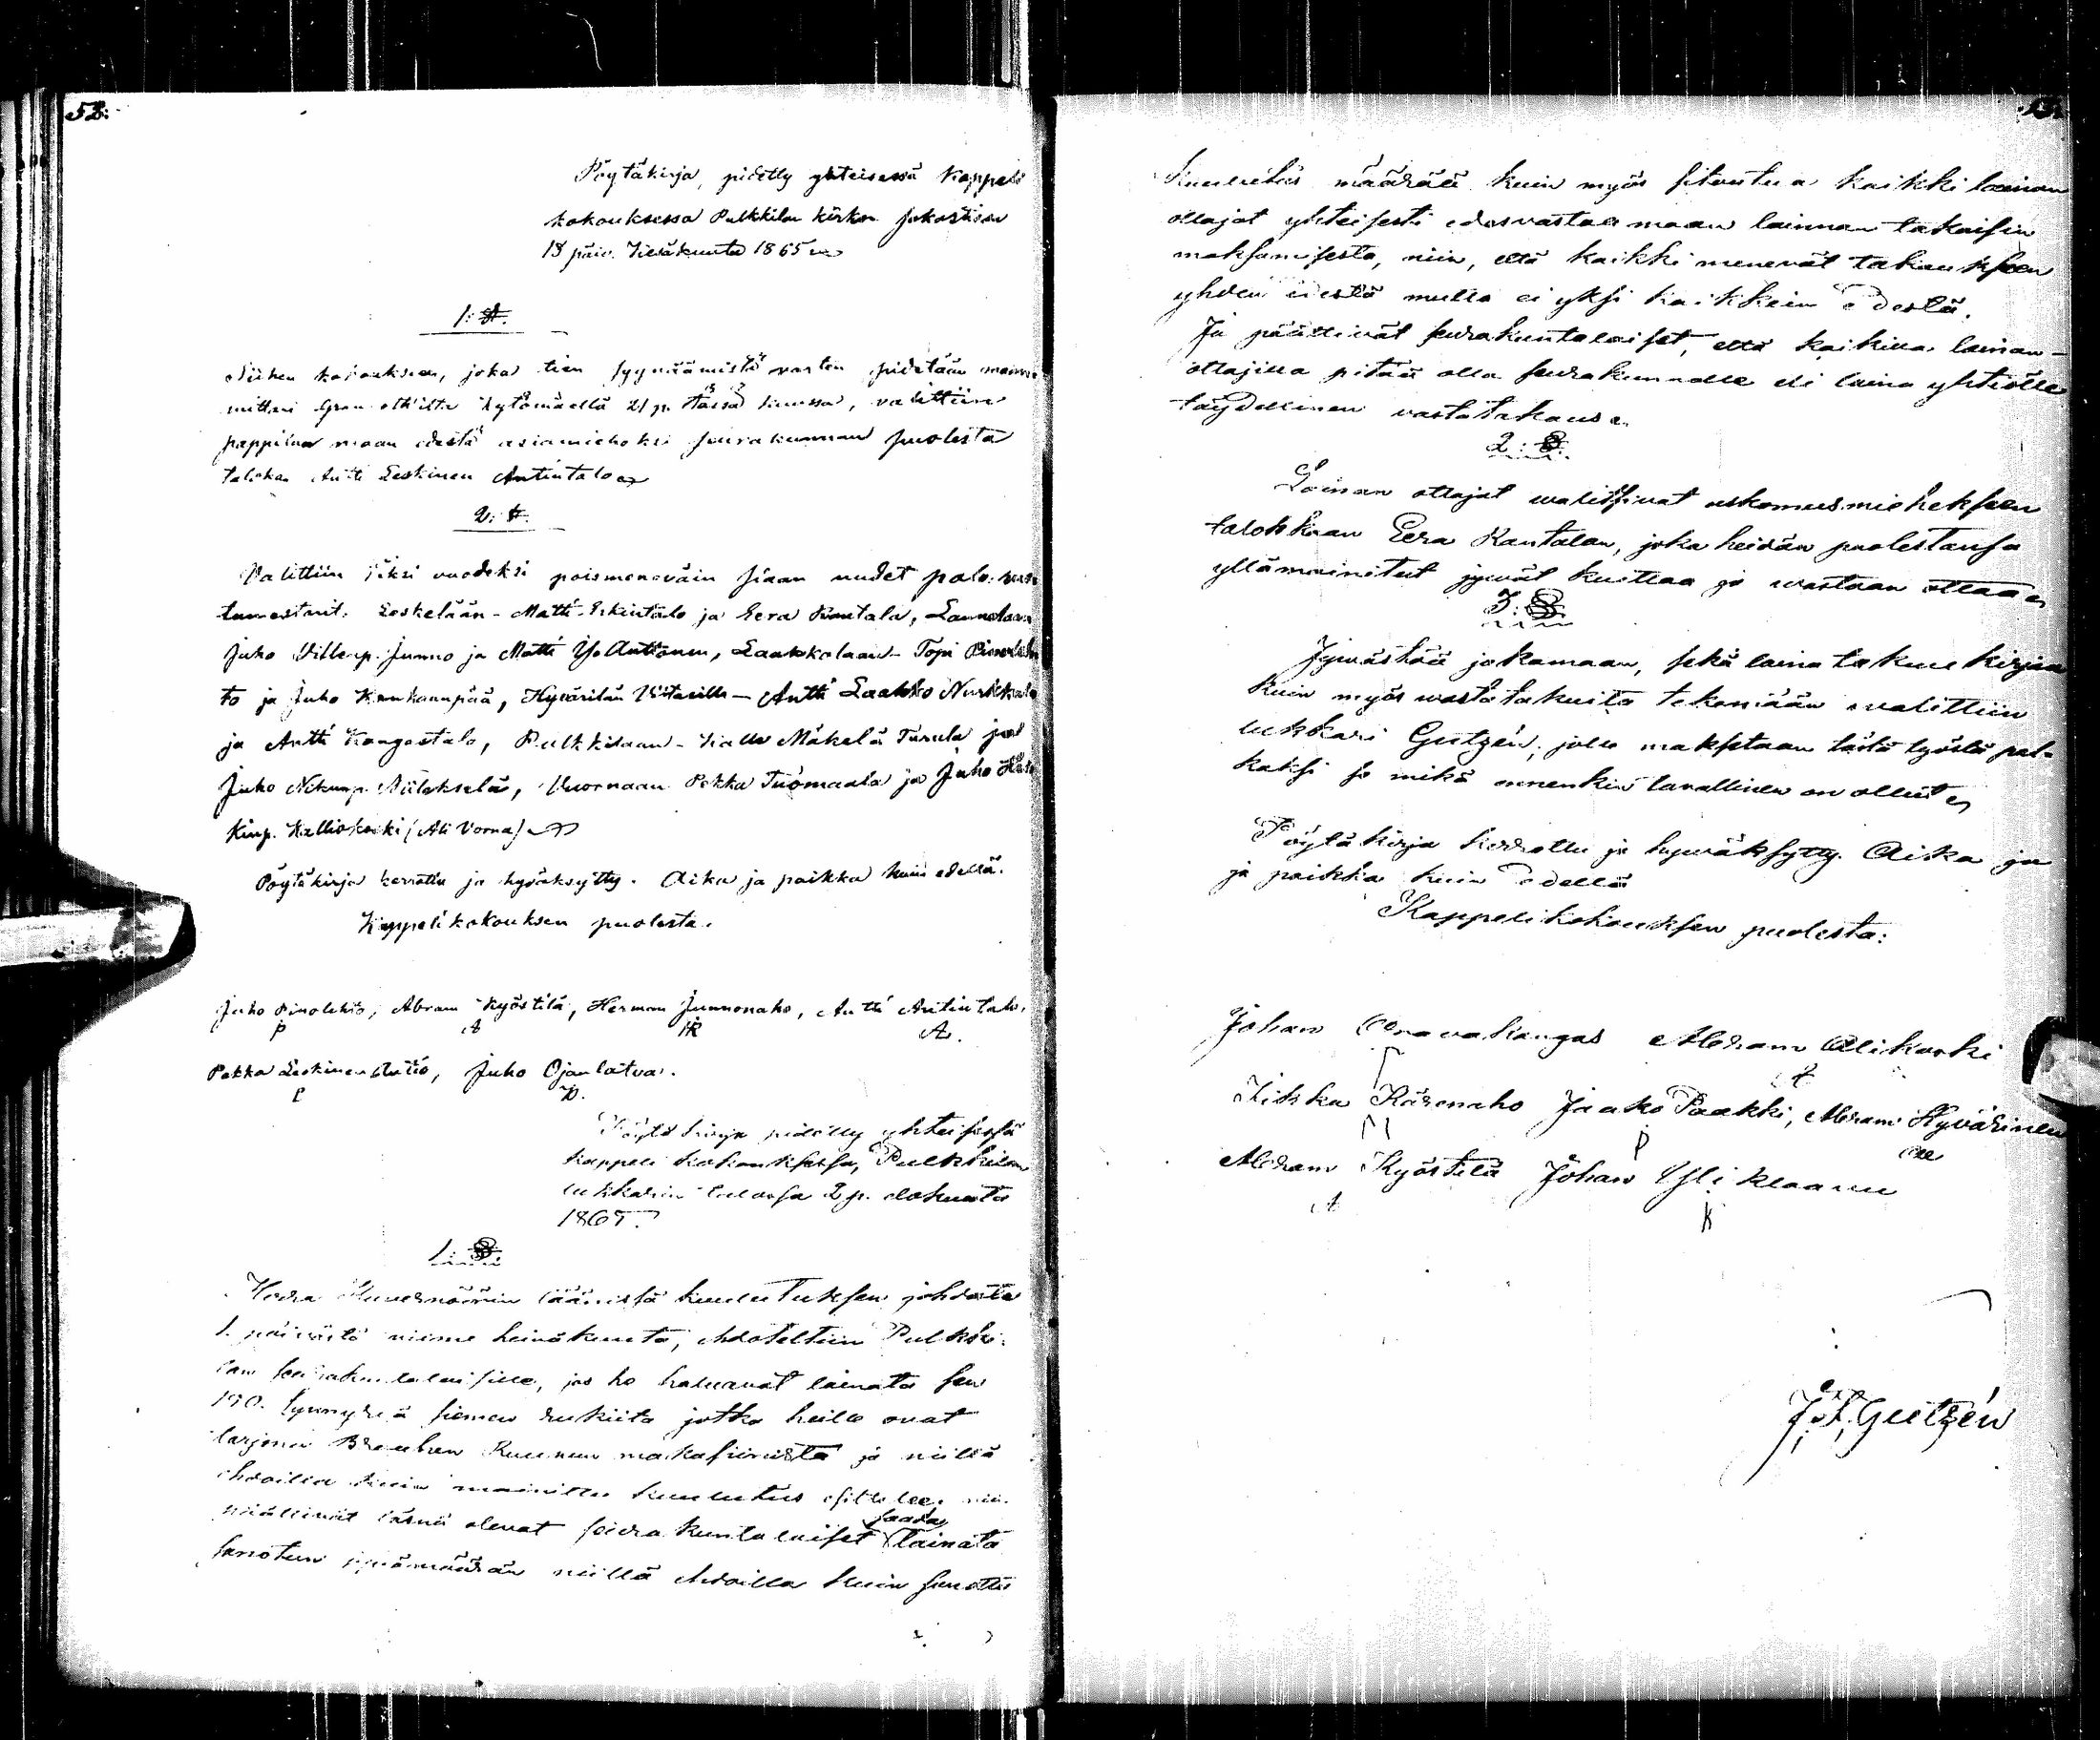 52.
Pöytäkirja, pidetty yhteisessä Kappeli
kokouksessa Pulkkilan kirkon sakastissa
18 päiv. Kesäkuuta 1865
1: §.
Siihen kokouksen, joka tien syynäämistä varten pidetään maan
mittari Granrothilta Kytömäellä 21 p. tässä kuussa, valittiin
pappilan maan edestä asiamieheksi seurakunnan puolesta
talokas Antti Leskinen Antintalo
2: §.
Valittiin yksi vuodeksi poismeneväin siaan uudet palo-
tumestarit. Leskelään - Matti Eskintalo ja Eera Rautala,
Juho Villenp. Junno ja Matti Yso Anttonen, Laakkolaan - Topi Pinoleh
to ja Juho Kankaanpää, Hyvärilän - Antti Laakko Nurkkala
ja Antti Kangastalo, Pulkkilaan - Kalle Mäkelä Turula ja
Juho Niilekselä, Vuornaan Pekka Tuomaala ja Juho
Kinp. Kalliokoski (Ali Vorna)
Pöytäkirja kerrottu ja hyväksytty. Aika ja paikka kuin edellä.
Kappelikokouksen puolesta.
Juho Pinolehto, Abram Kyöstilä, Herman Junnonaho, Antti Antintalo,
P A HR A.
Pekka Leskinen Autio, Juho Ojanlatva.
Pöytäkirja pidetty yhteisessä
kappeli kokouksessa, Pulkkilan
lukkarin talossa 2 p. elokuuta
1865.
1: §.
Herra Kuvernöörin läänissä kuulutuksen johdosta
1. päivästä viime heinäkuuta, ehdoteltiin Pulkki-
lan seurakuntalaisille, jos he haluavat lainata sen
190. tynnyriä siemen rukiita jotka heille ovat
tarjona Kruunun makasiinista ja niillä
ehdoilla kuin mainittu kuulutus
päättivät läsnä olevat seurakuntalaiset saada lainata
sanotun jyvämäärän niillä ehdoilla kuin sanottu
Kuulutus määrää kuin myös sitoutua kaikki lainan
ottajat yhteisesti edesvastaamaan lainan takaisin
maksamisesta, niin, että kaikki menevät takaukseen
yhden edestä mutta ei yksi kaikkein edestä.
Ja päättivät seurakuntalaiset, että kaikilla lainan-
ottajilla pitää olla seurakunnalle eli laina yhtiölle
täydellinen vastatakaus.
2: §.
Lainan ottajat walitsivat uskomusmieheksen
talokkaan Eera Rautalan, joka heidän puolestansa
yllämainitut jyvät kuittaa ja wastaan ottaa
3: §
Jywästöä jakamaan, sekä laina takuu kirjaa
kuin myös wasta takuita tekemään walittiin
lukkari Gutzén, jolle maksetaan tästä työstä pal-
kaksi se mikä ennenkin tavallinen on ollut
Pöytäkirja kerrottu ja hywäksytty. Aika ja
ja paikka kuin edellä
Kappelikokouksen puolesta:
Johan Oravakangas Abram Alikoski
Kärenaho Jaako Paakki, Abram Hyvärinen
Abram Kyöstilä Johan Yliklaanu
A K
Joh. Gutzén